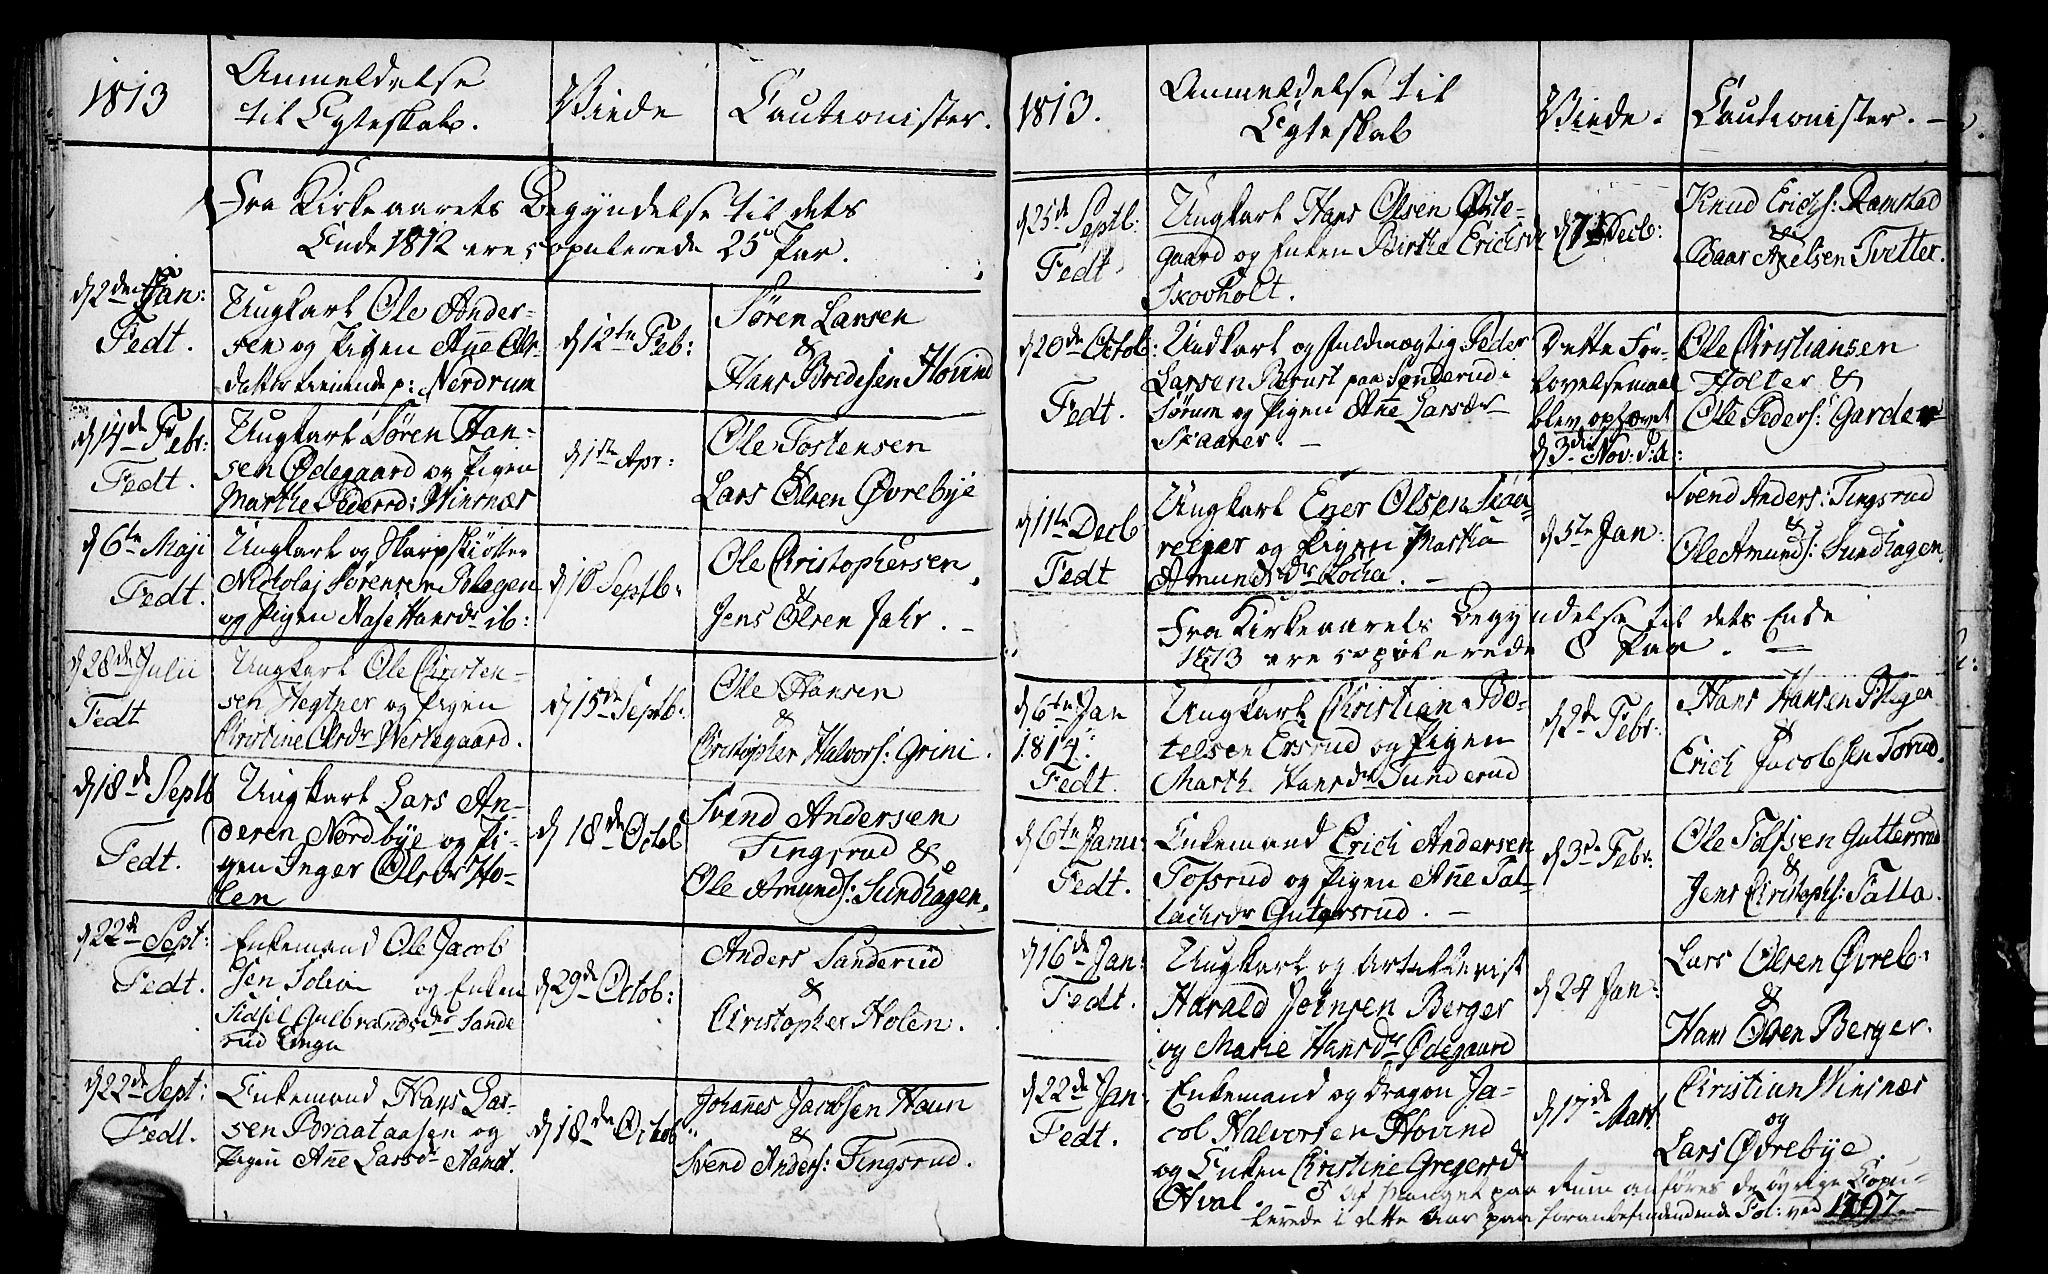 1813
Anmeldelse
til Egteskab.
Viede
Cautionister.
Fra Kirkeaarets Begyndelse til dets
Ende 1812 ere copulerede 25 Par.
d 2den Jan:
Fedt.
Ungkarl Ole Ander-
sen og Pigen Anne Ols-
datter tienende p: Nerdrum
d 12te Feb:
Søren Larsen
&
Hans Bredesen Hovind
d 14de Febr:
Fedt.
Ungkarl Søren Han-
sen Ødegaard og Pigen
Marthe Pedersd: Winsnæs
d 1te Apr:
Ole Tostensen
&
Lars Olsen Øvrebye
d 6te Maji
Fedt.
Ungkarl og Skarpskiøtter
Nicholaj Sørensen Blegen
og Pigen Aase Hansdr ib:
d 10 Septb:
Ole Christophersen
&
Jens Olsen Jahr. -
d 28de Julii
Fedt
Ungkarl Ole Christen-
sen Hegtner og Pigen
Christine Olsdr Westegaard.
d 15de Septb:
Ole Hansen
&
Christopher Halvors: Grini.
d 18de Septb
Fedt.
Ungkarl Lars An-
dersen Nordbye og Pi-
gen Inger Olsdr Ho-
len
d 18de Octob
Svend Andersen
Tingsrud &
Ole Amunds: Sundhagen.
d 22de Sept:
Fedt.
Enkemand Ole Jacob
sen Solien og Enken
Sidsel Gulbrandsdr Sande
rud Enga
d 29de Octob:
Anders Sanderud
&
Christopher Holen.
d 22de Sept:
Fedt.
Enkemand Hans Lar-
sen Braataasen og
Pigen Anne Larsdr Aamot.
d 18de Octob:
Johannes Jacobsen Haun
&
Svend Anders: Tingsrud.
1813.
Anmeldelse til
Egteskab
Viede.
Cautionister. -
d 25de Septb:
Fedt
Ungkarl Hans Olsen Øste-
gaard og Enken Birthe Erichsdr
Skovholt.
d 7de Decb:
Knud Erichs: Ramstad
&
Baar Axelsen Tvetter.
d 20de Octob:
Fedt.
Undkarl og Fuldmægtig Peder
Larsen Borust paa Sønderud i
Sørum og Pigen Anne Larsdr
Skaarer. -
Dette For-
lovelsemaal
blev ophævet
d 3die Nov: d: A:
Ole Christiansen
Holter &
Ole Peders: Garder
d 11te Decb
Fedt
Ungkarl Ener Olsen Skøn-
reiger og Pigen Martha
Amundsdr Locha. -
d 5te Jan:
Svend Anders: Tingsrud
&
Ole Amunds: Sundhagen.
Fra Kirkeaarets Begyndelse til dets Ende
1813 ere copulerede 8 Par. -
d 6te Jan
1814.
Fedt.
Ungkarl Christian Bo-
telsen Ersrud og Pigen
Marth. Hansdr Sunderud
d 2de Febr:
Hans Hansen Blegen
&
Erich Jacobsen Torud.
d 6te Janu:
Fedt.
Enkemand Erich Andersen
Tofsrud og Pigen Anne Tal-
lachsdr Gutersrud. -
d 3die Febr:
Ole Tolfsen Guttersrud
&
Jens Christoph: Talla.
d 16de Jan:
Fedt.
Ungkarl og Artillerist
Harald Joensen Berger
og Marie Hansdr Ødegaard
d 24 Jan:
Lars Olsen Øvreb:
&
Hans Olsen Berger.
d 22de Jan:
Fedt.
Enkemand og Dragon Ja-
cob Halvorsen Hovind
og Enken Christine Gregersdr
Hval.
d 17de Mart
Christian Winsnæs
og
Lars Øvrebye
Af Mangel paa Rum anføres de øvrige Copu-
lerede i dette Aar paa foranbefindendende Fol: ved 1797. -